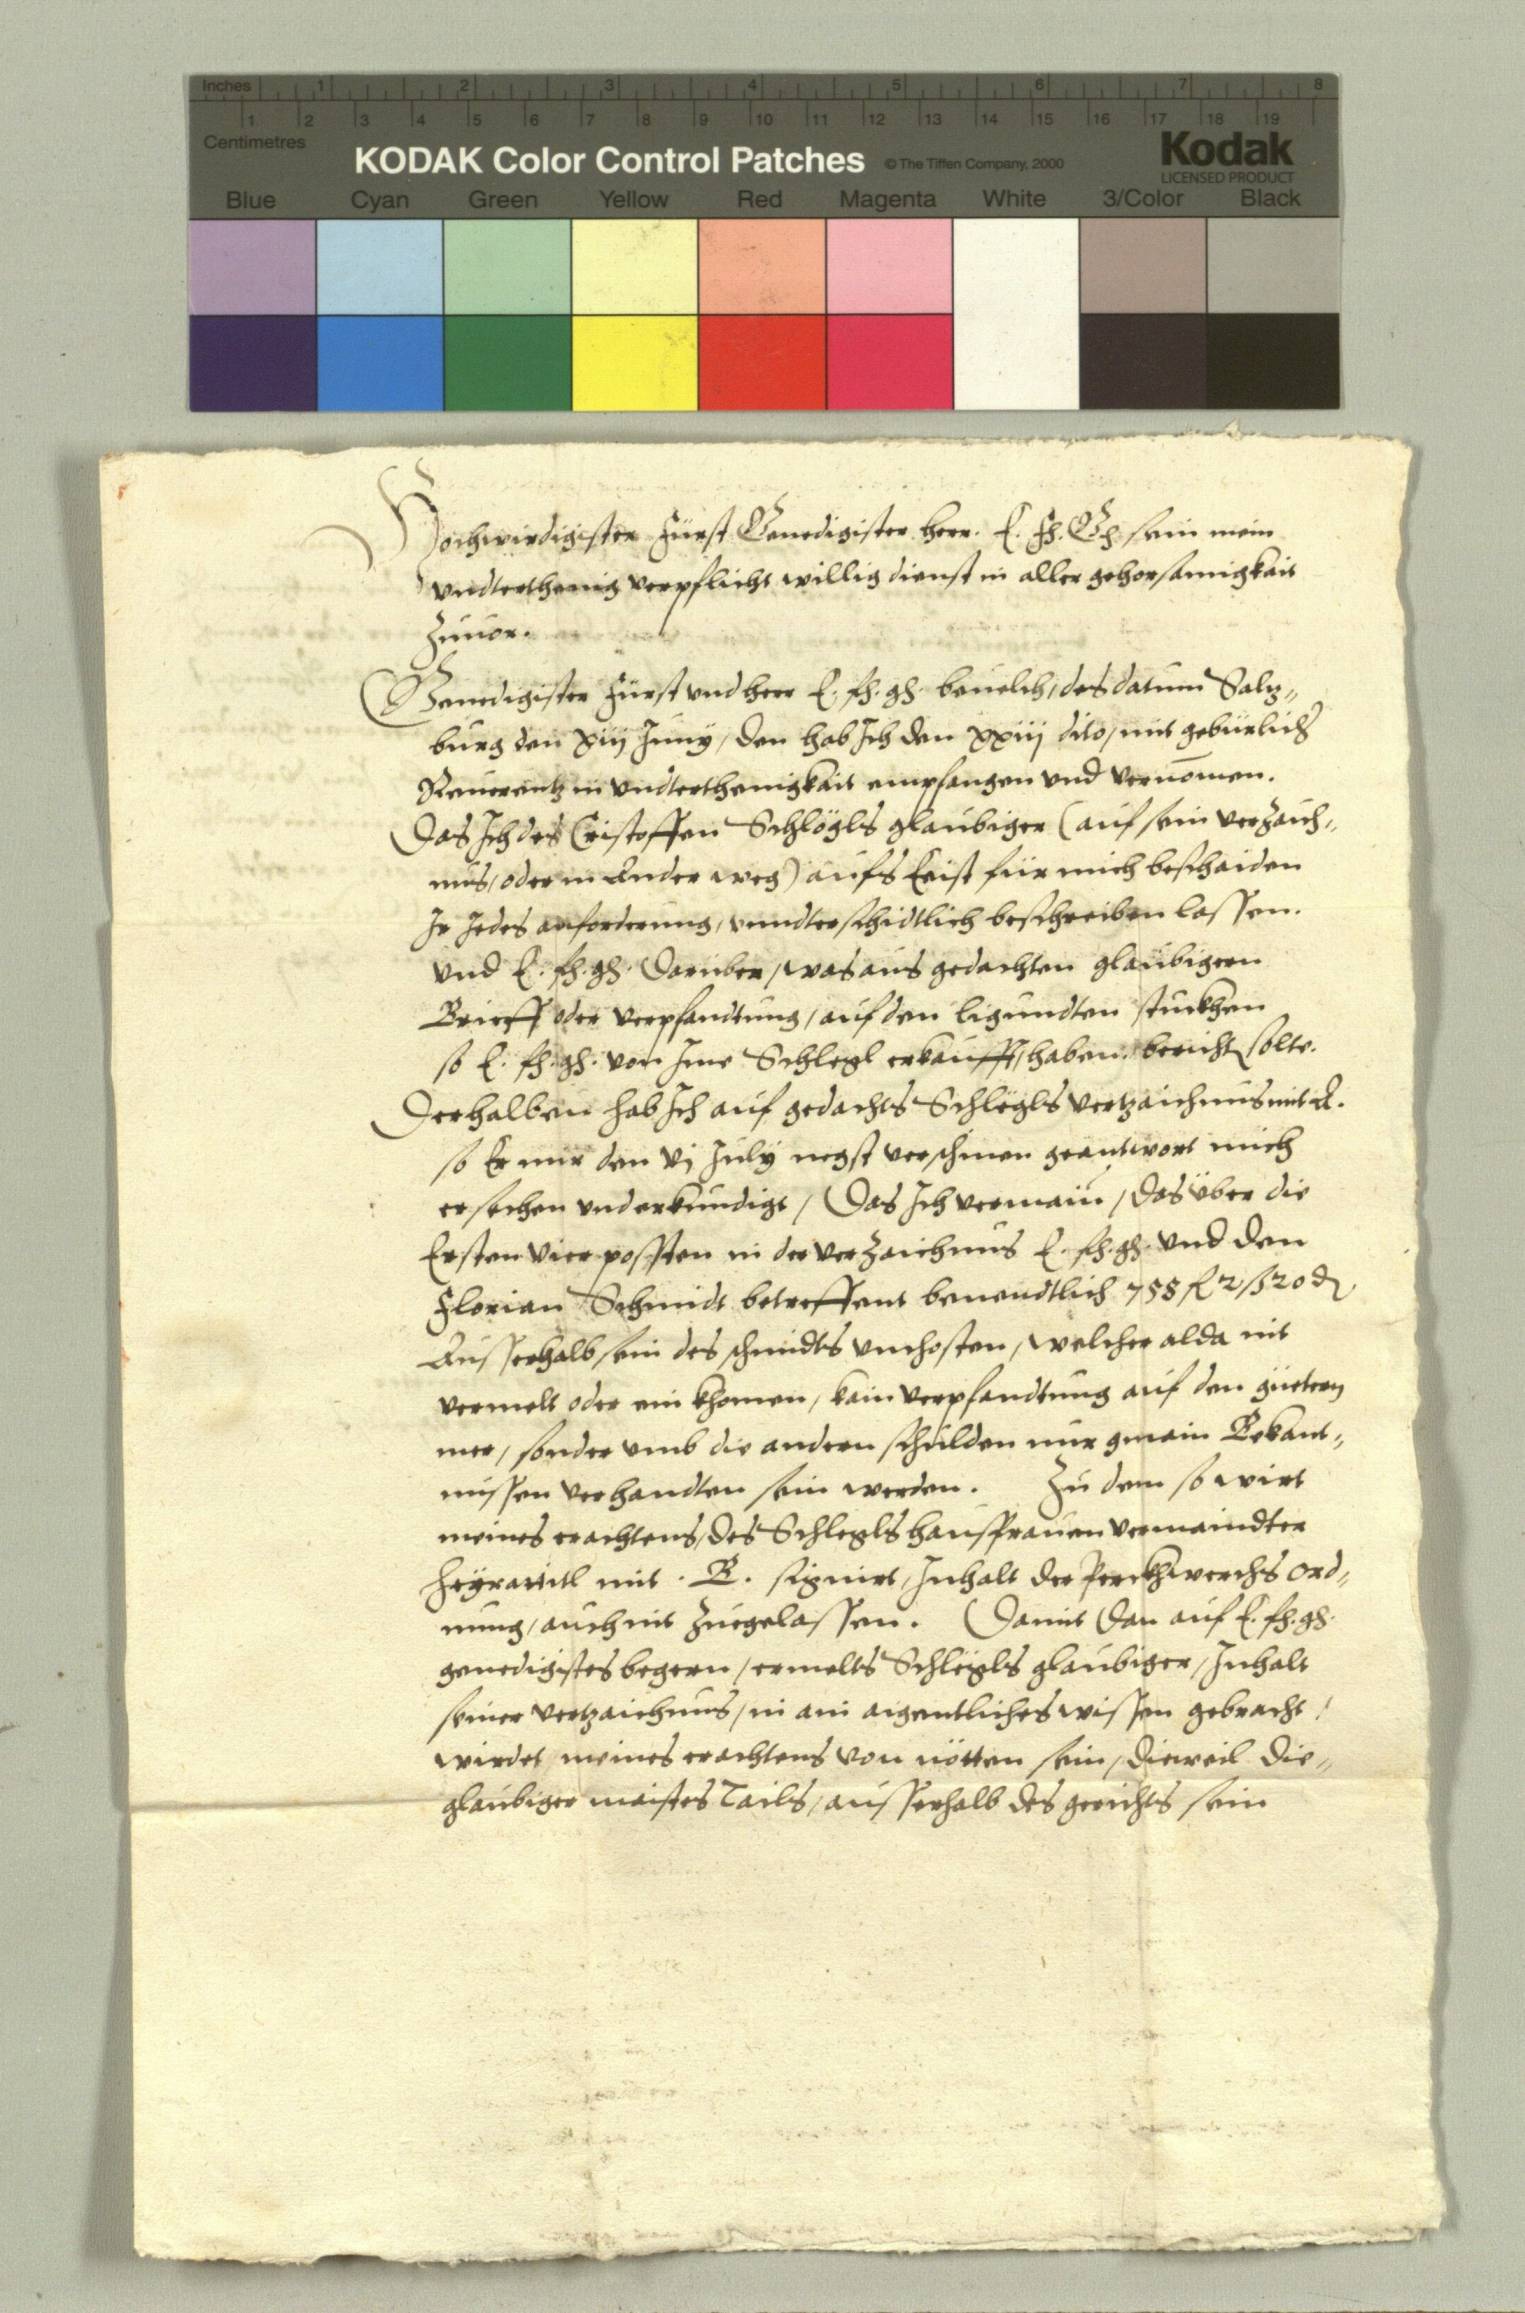 Inches 1 2 3 4 5 6 7 8
1 2 3 4 5 6 7 8 9 10 11 12 13 14 15 16 17 18 19
Centimetres
KODAK Color Control Patches © The Tiffen Company, 2000 Kodak
LICENSED PRODUCT
Blue Cyan Green Yellow Red Magenta White 3/Color Black
Hochwirdigister Fürst Genedigister herr. E. Fh. Gh. sein mein
vndterthenig verpflicht willig dienst in aller gehorsamigkait
Zuuor.
Genedigister Fürst vnd herr E. fh. gh. beuelch, des datum Saltz„
burg den xiij Juny, den hab Ich den xxiij dito, mit gebürlich
Reuerentz in vndterthenigkait empfangen vnd vernomen.
Das Ich des Cristoffen Schlögls glaubiger (auf sein verzaich„
nus, oder in Ander weg) aufs Eeist für mich beschaiden
Ir Jedes anforderung, vnndterschidtlich beschreiben lassen.
vnd E. fh. gh. Darüber, was aus gedachten glaubigern
Brieff oder verpfandtung, auf den ligundten stuckhen
so E. fh. gh. von Ime Schlegl erkaufft, haben. bericht solte.
Derhalben hab Ich auf gedachts Schlegls vertzaichnus mit A.
so Er mir den vj July negst verschinen geantwort mich
ersechen vnd erkundigt, Das Ich vermain, das über die
Ersten vier possten in der verzaichnus E. fh. gh. vnd den
Florian Schmidt betreffent benendtlich 758 fl 2 ß 20 d
Ausserhalb sein des schmidts vnchosten, welcher alda nit
vermelt oder ein khomen, kain verpfandtung auf den güetern
mer, sonder vmb die andern schulden nur gmain Bekant„
nussen verhandten sein werden. Zu dem so wirt
meines erachtens, des Schlegls hausfrauen vermaindter
heyratitl mit . B. signirt, Inhalt der Perckhwerchs Ord„
nung, auch nit Zuegelassen. Damit Dan auf E. fh. gh.
genedigistes begern, ermelts Schlegls glaubiger, Inhalt
seiner vertzaichnus, in ain aigentliches wissen gebracht /
wirdet, meines erachtens von nötten sein, dieweil die„
glaubiger maistes Tails, ausserhalb des gerichts sein